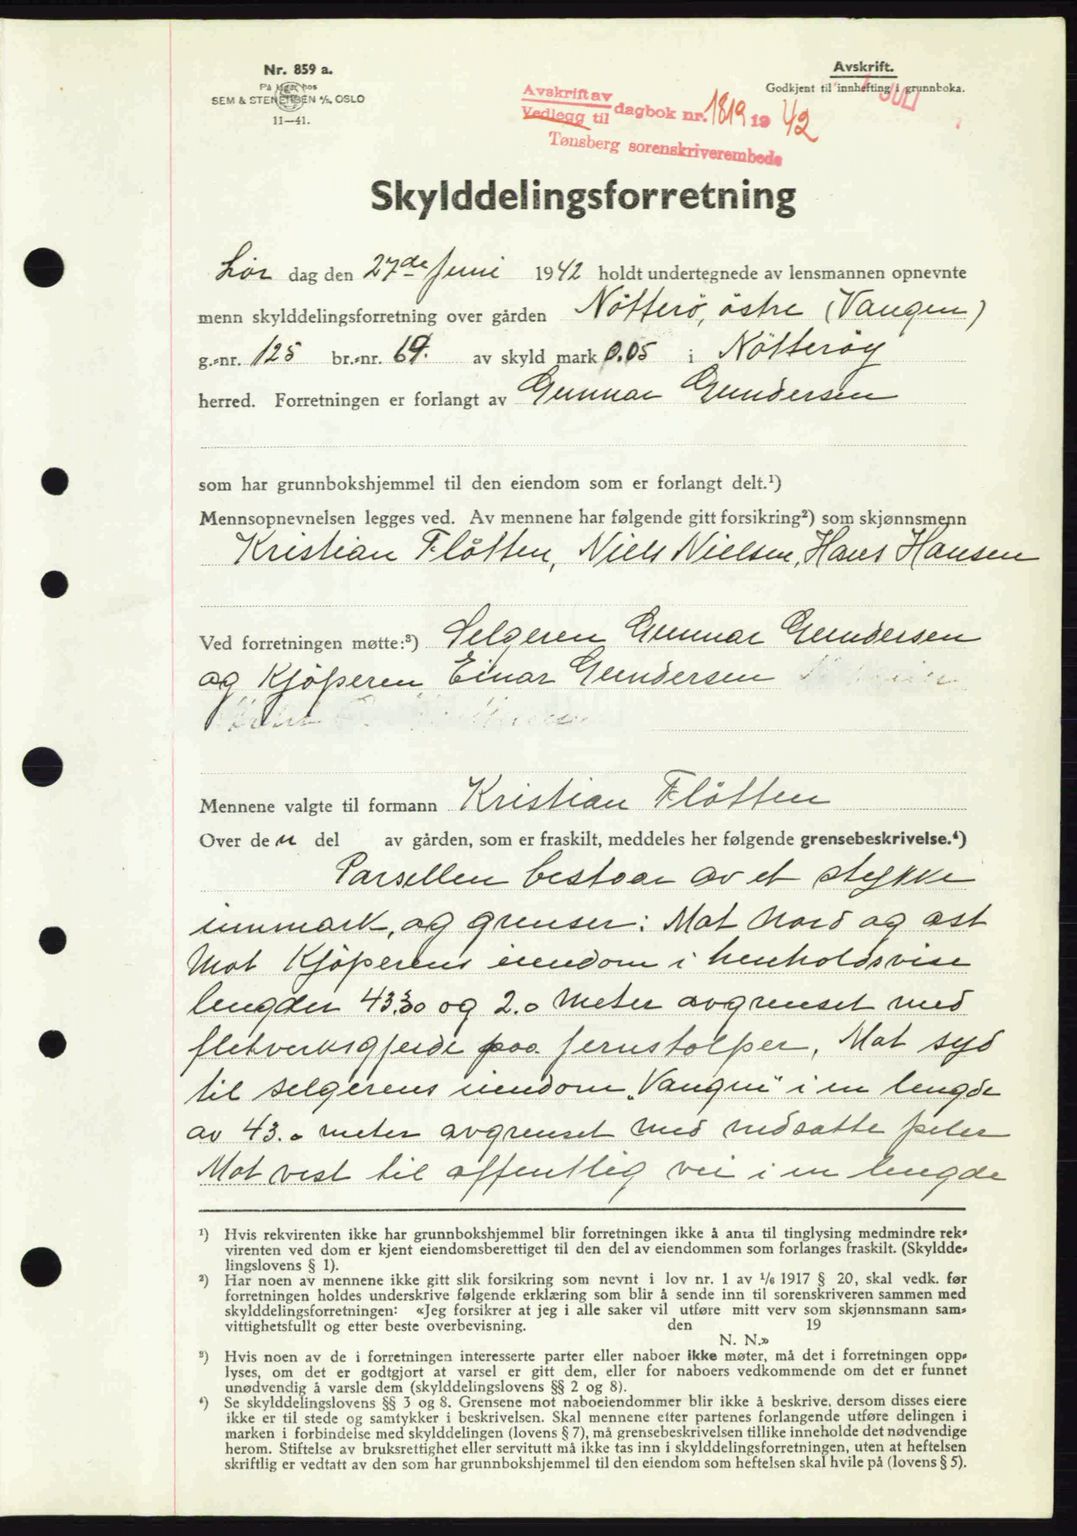 Nr. 859 a.
På lager hos
SEM & STENERSEN A/S, OSLO
11—41.
Avskrift.
Godkjent til innhefting i grunnboka.
JULI
Avskrift av
Vedlegg til dagbok nr. 1819 19 42
Tønsberg sorenskriverembede
Skylddelingsforretning
Lör dag den 27de Juni 1942 holdt undertegnede av lensmannen opnevnte
menn skylddelingsforretning over gården Nötterö, östre (Vangen)
g.-nr. 125 br.-nr. 69. av skyld mark 0.05 i Nötteröy
herred. Forretningen er forlangt av Gunnar Gundersen
som har grunnbokshjemmel til den eiendom som er forlangt delt.¹)
Mennsopnevnelsen legges ved. Av mennene har følgende gitt forsikring²) som skjønnsmenn
Kristian Flötten, Niels Nielsen, Hans Hansen
Ved forretningen møtte:³) Selgeren Gunnar Gundersen
og Kjöperen Einar Gundersen
Mennene valgte til formann Kristian Flötten
Over den del av gården, som er fraskilt, meddeles her følgende grensebeskrivelse.⁴)
Parsellen bestaar av et stykke
innmark, og grenser: Mot Nord og öst
Mot Kjöperens eiendom i henholdsvise
lengder 43.30 og 2.0 meter avgrenset med
fletverksgjerde paa jernstolper, Mot syd
til selgerens eiendom „Vangen" i en lengde
av 43.0 meter avgrenset med nedsatte peler
Mot vest til offentlig vei i en lengde
¹) Hvis rekvirenten ikke har grunnbokshjemmel blir forretningen ikke å anta til tinglysing medmindre rek-
virenten ved dom er kjent eiendomsberettiget til den del av eiendommen som forlanges fraskilt. (Skyldde-
lingslovens § 1).
²) Har noen av mennene ikke gitt slik forsikring som nevnt i lov nr. 1 av 1/6 1917 § 20, skal vedk. før
forretningen holdes underskrive følgende erklæring som blir å sende inn til sorenskriveren sammen med
skylddelingsforretningen: «Jeg forsikrer at jeg i alle saker vil utføre mitt verv som skjønnsmann sam-
vittighetsfullt og etter beste overbevisning. den 19
N. N.»
³) Hvis noen av de i forretningen interesserte parter eller naboer ikke møter, må det i forretningen opp-
lyses, om det er godtgjort at varsel er gitt dem, eller for naboers vedkommende om det er funnet
unødvendig å varsle dem (skylddelingslovens §§ 2 og 8).
⁴) Se skylddelingslovens §§ 3 og 8. Grensene mot naboeiendommer blir ikke å beskrive, dersom disses eiere
ikke er til stede og samtykker i beskrivelsen. Skal mennene etter partenes forlangende utføre delingen i
marken i forbindelse med skylddelingen (lovens § 7), må grensebeskrivelsen tillike inneholde det nødvendige
herom. Stiftelse av bruksrettighet eller servitutt må ikke tas inn i skylddelingsforretningen, uten at heftelsen
skriftlig er vedtatt av den som har grunnbokshjemmel til den eiendom som heftelsen skal hvile på (lovens § 5).